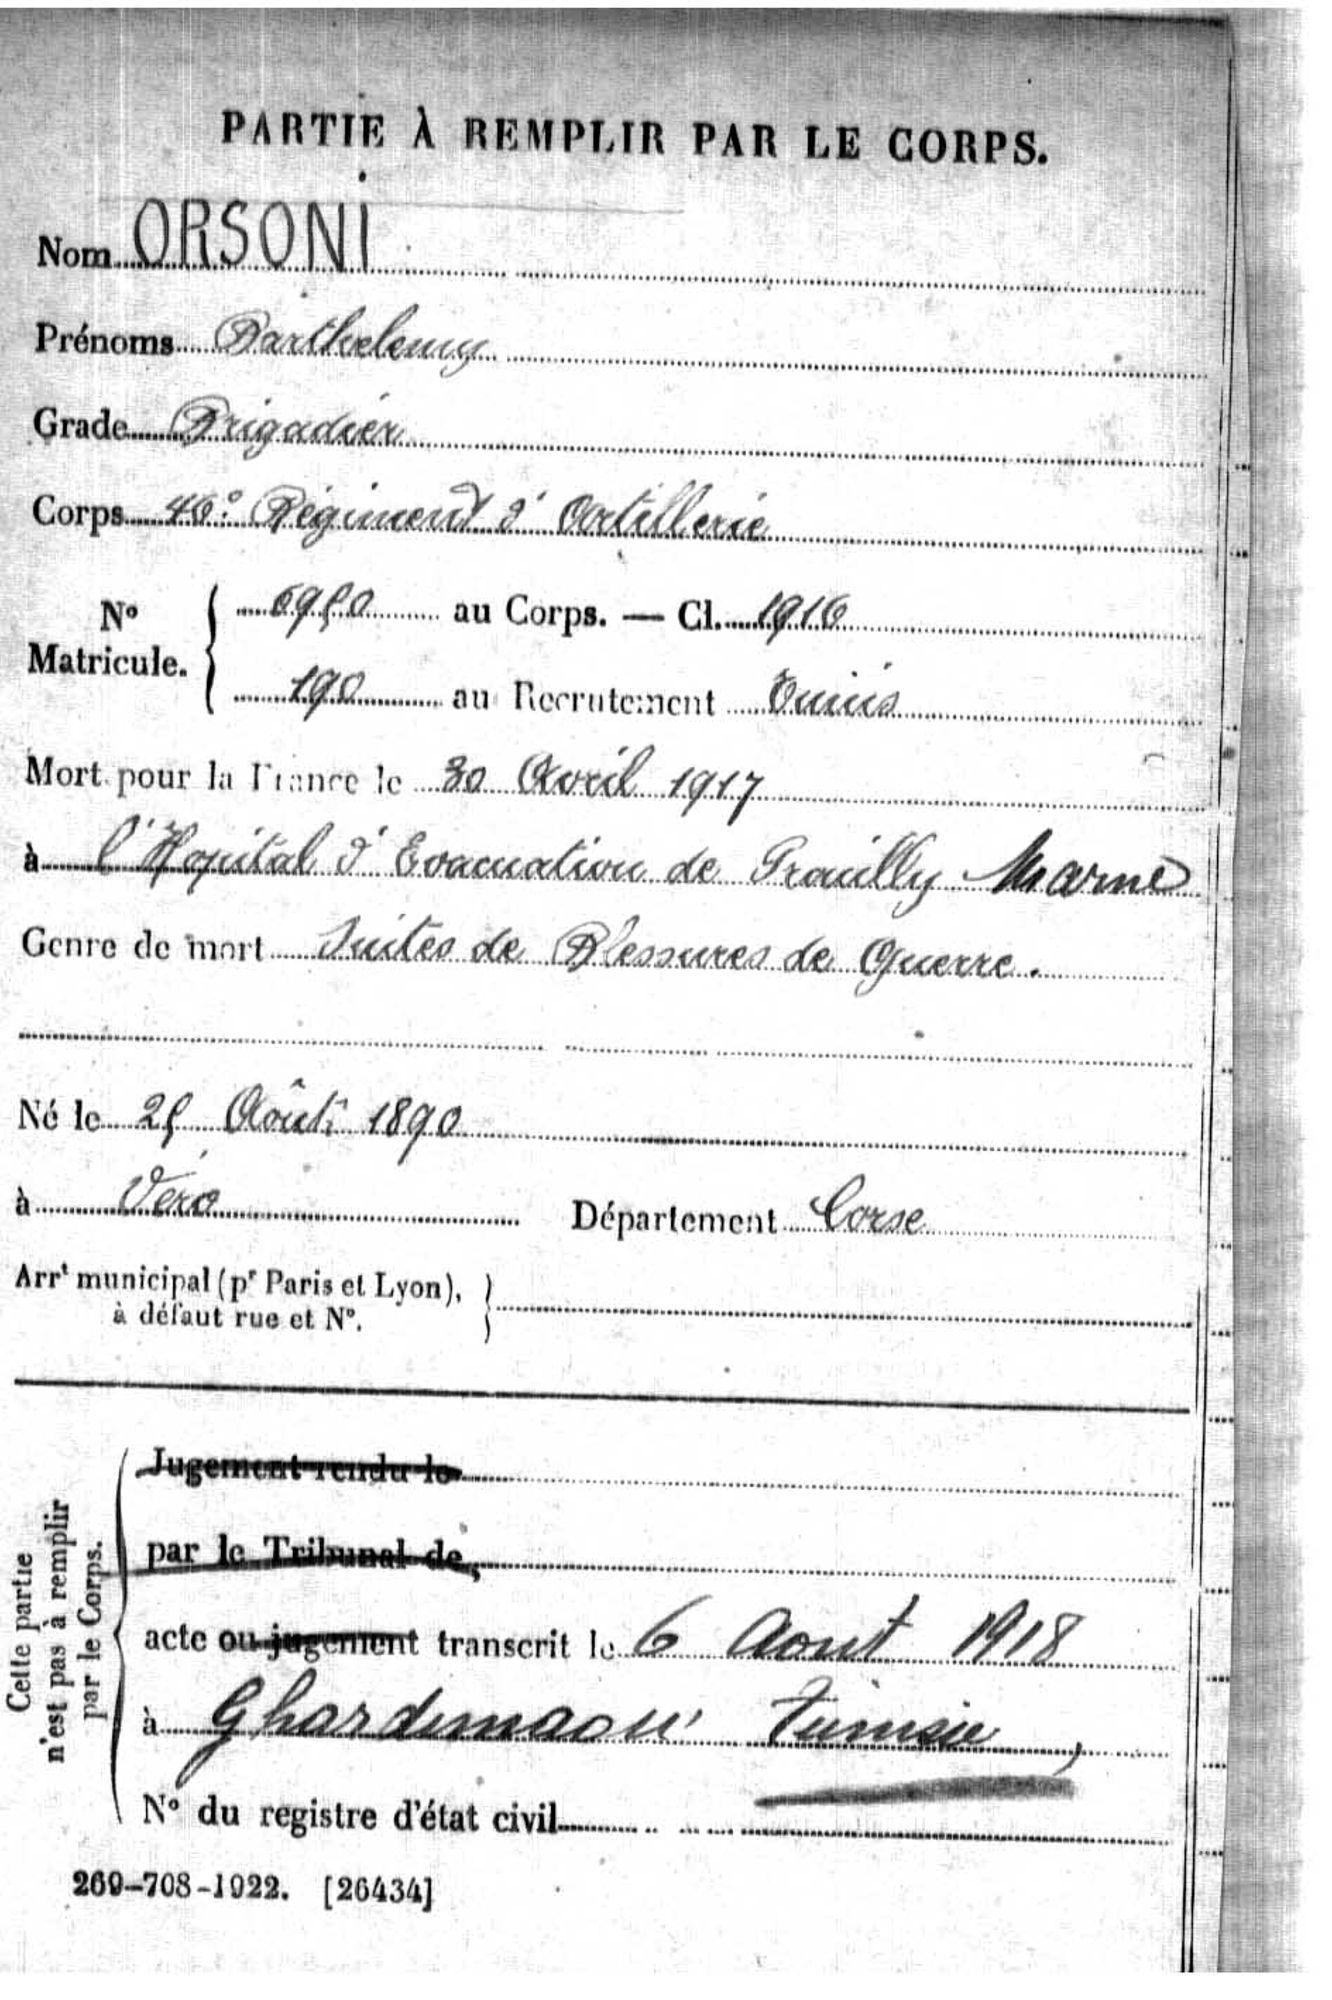 PARTIE À REMPLIR PAR LE CORPS.
Nom ORSONI
Prénoms Barthelemy
Grade Brigadier
Corps 46e Régiment d'Artillerie
No Matricule. 6950 au Corps. — Cl. 1916
190 au Recrutement Tunis
Mort pour la France le 30 Avril 1917
à l'Hopital d'Evacuation de Prouilly Marne
Genre de mort Suites de Blessures de Guerre.
Né le 25 Août 1890
à Véro Département Corse
Arrt municipal (pr Paris et Lyon),
à défaut rue et No.
Cette partie
n'est pas à remplir
par le Corps.
Jugement rendu le
par le Tribunal de
acte ou jugement transcrit le 6 Aout 1918
à Ghardimaou Tunisie
No du registre d'état civil
269-708-1922. [26434]